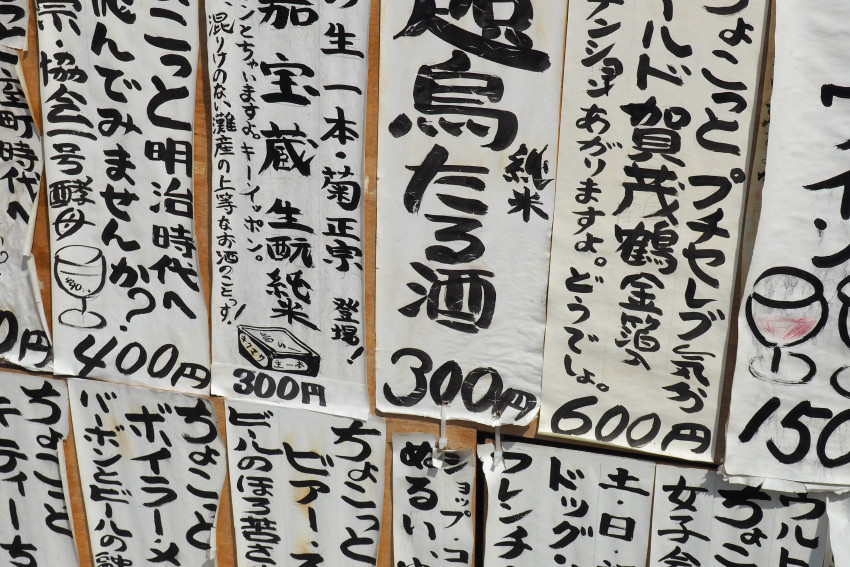 ちょこっとプチセレブ気分
ールド賀茂鶴金箔入
テンションあがりますよ。どうでしょ。
600円
純米
超鳥たる酒
300円
の生一本・菊正宗 登場！
嘉宝蔵 生酛純米
ンとちゃいますよ。キーイッポン。
混りけのない灘産の上等なお酒のことっす！
キクマサ
生一本
300円
ょこっと明治時代へ
飲んでみませんか？
宗・協会一号酵母
400円
座町時代へ
0円
ワイン
150
ちょこっと
ウルト
ちょこ
女子会
土・日・
ドッグ・
フレンチ
ショップ・コ
ぬるい、
ちょこっと
ビアー・ス
ビールのほろ苦さ
ちょこっと
ボイラーメ
バーボンとビールの
ちょこっと
キティーち